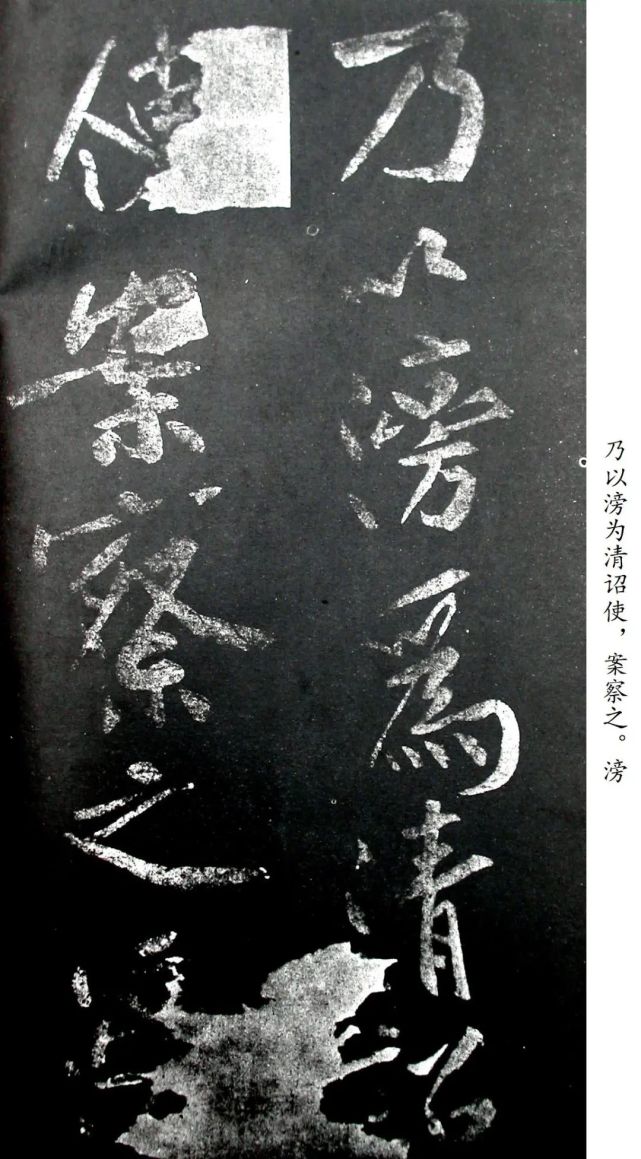 乃以滂爲清詔
使案察之滂
乃以滂为清诏使，案察之。滂